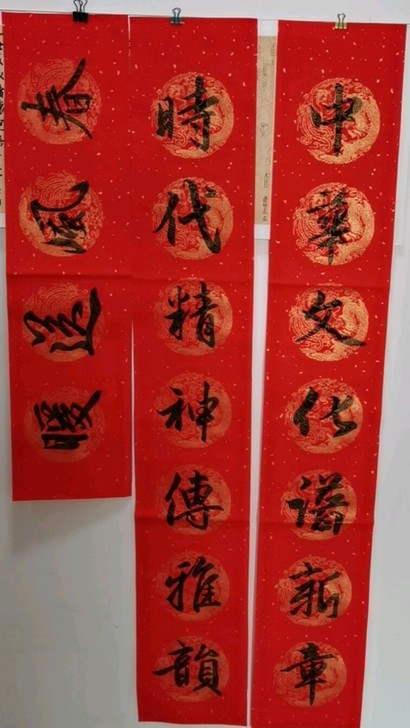 中華文化譜新章
時代精神傳雅韻
春風送暖